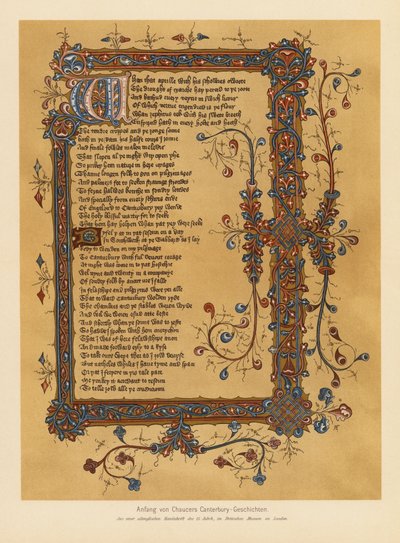 Whan that aprille with his schowres swoote
The drought of marche haþ perced to þe roote
And bathud every veyne in swich licour
Of which vertue engendred is þe flour
Whan zephirus eek with his swete breeth
Enspirud hath in every holte and heeth
The tendre croppes and þe yonge sonne
hath in þe ram his halfe cours yronne
And smale fowles maken melodye
That slepen al þe night with open yhe
So prikeþ hem nature in here corages
Thanne longen folk to gon on pilgrimages
And palmers for to seeken straunge strondes
To ferne halwes kouthe in sondry londes
And specially from every schires ende
Of Engelond to Canturbury þey wende
The holy blisful martir for to seeke
That hem haþ holpen whan þat þey were seeke
Byfel þat in þat sesoun on a day
In Southwerk at þe Tabbard as I lay
Redy to wenden on my pilgrimage
To Canturbury with ful devout corage
At night was come in to þat hostelrie
Wel nyne and twenty in a companye
Of sondry folk by aventure yfalle
In felaschipe and pilgryms were þei alle
That toward Canturbury wolden ryde
The chambres and þe stables weren wyde
And wel we weren esud atte beste
And schortly whan þe sonne was to reste
So hadde I spoken with hem everychon
That I was of here felawschipe anon
And made forward erly to aryse
To take oure weye ther as I yow devyse
But natheles whiles I have tyme and space
Or þat I ferþere in þis tale pace
Me þenkeþ it acordant to resoun
To telle yow alle þe condicioun
Anfang von Chaucers Canterbury-Geschichten.
Aus einer altenglischen Handschrift des 15. Jahrh., im Britischen Museum zu London.